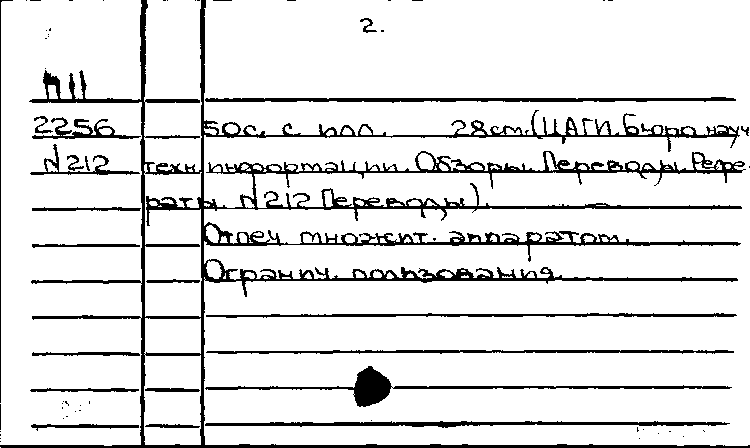 2.
П11
2256 50с. с илл. 28см. (ЦАГИ. Бюро науч
N212 техн. информации. Обзоры. Переводы. Рефе-
раты. N212 Переводы).
Отпеч. множит. аппаратом.
Огранич. пользования.